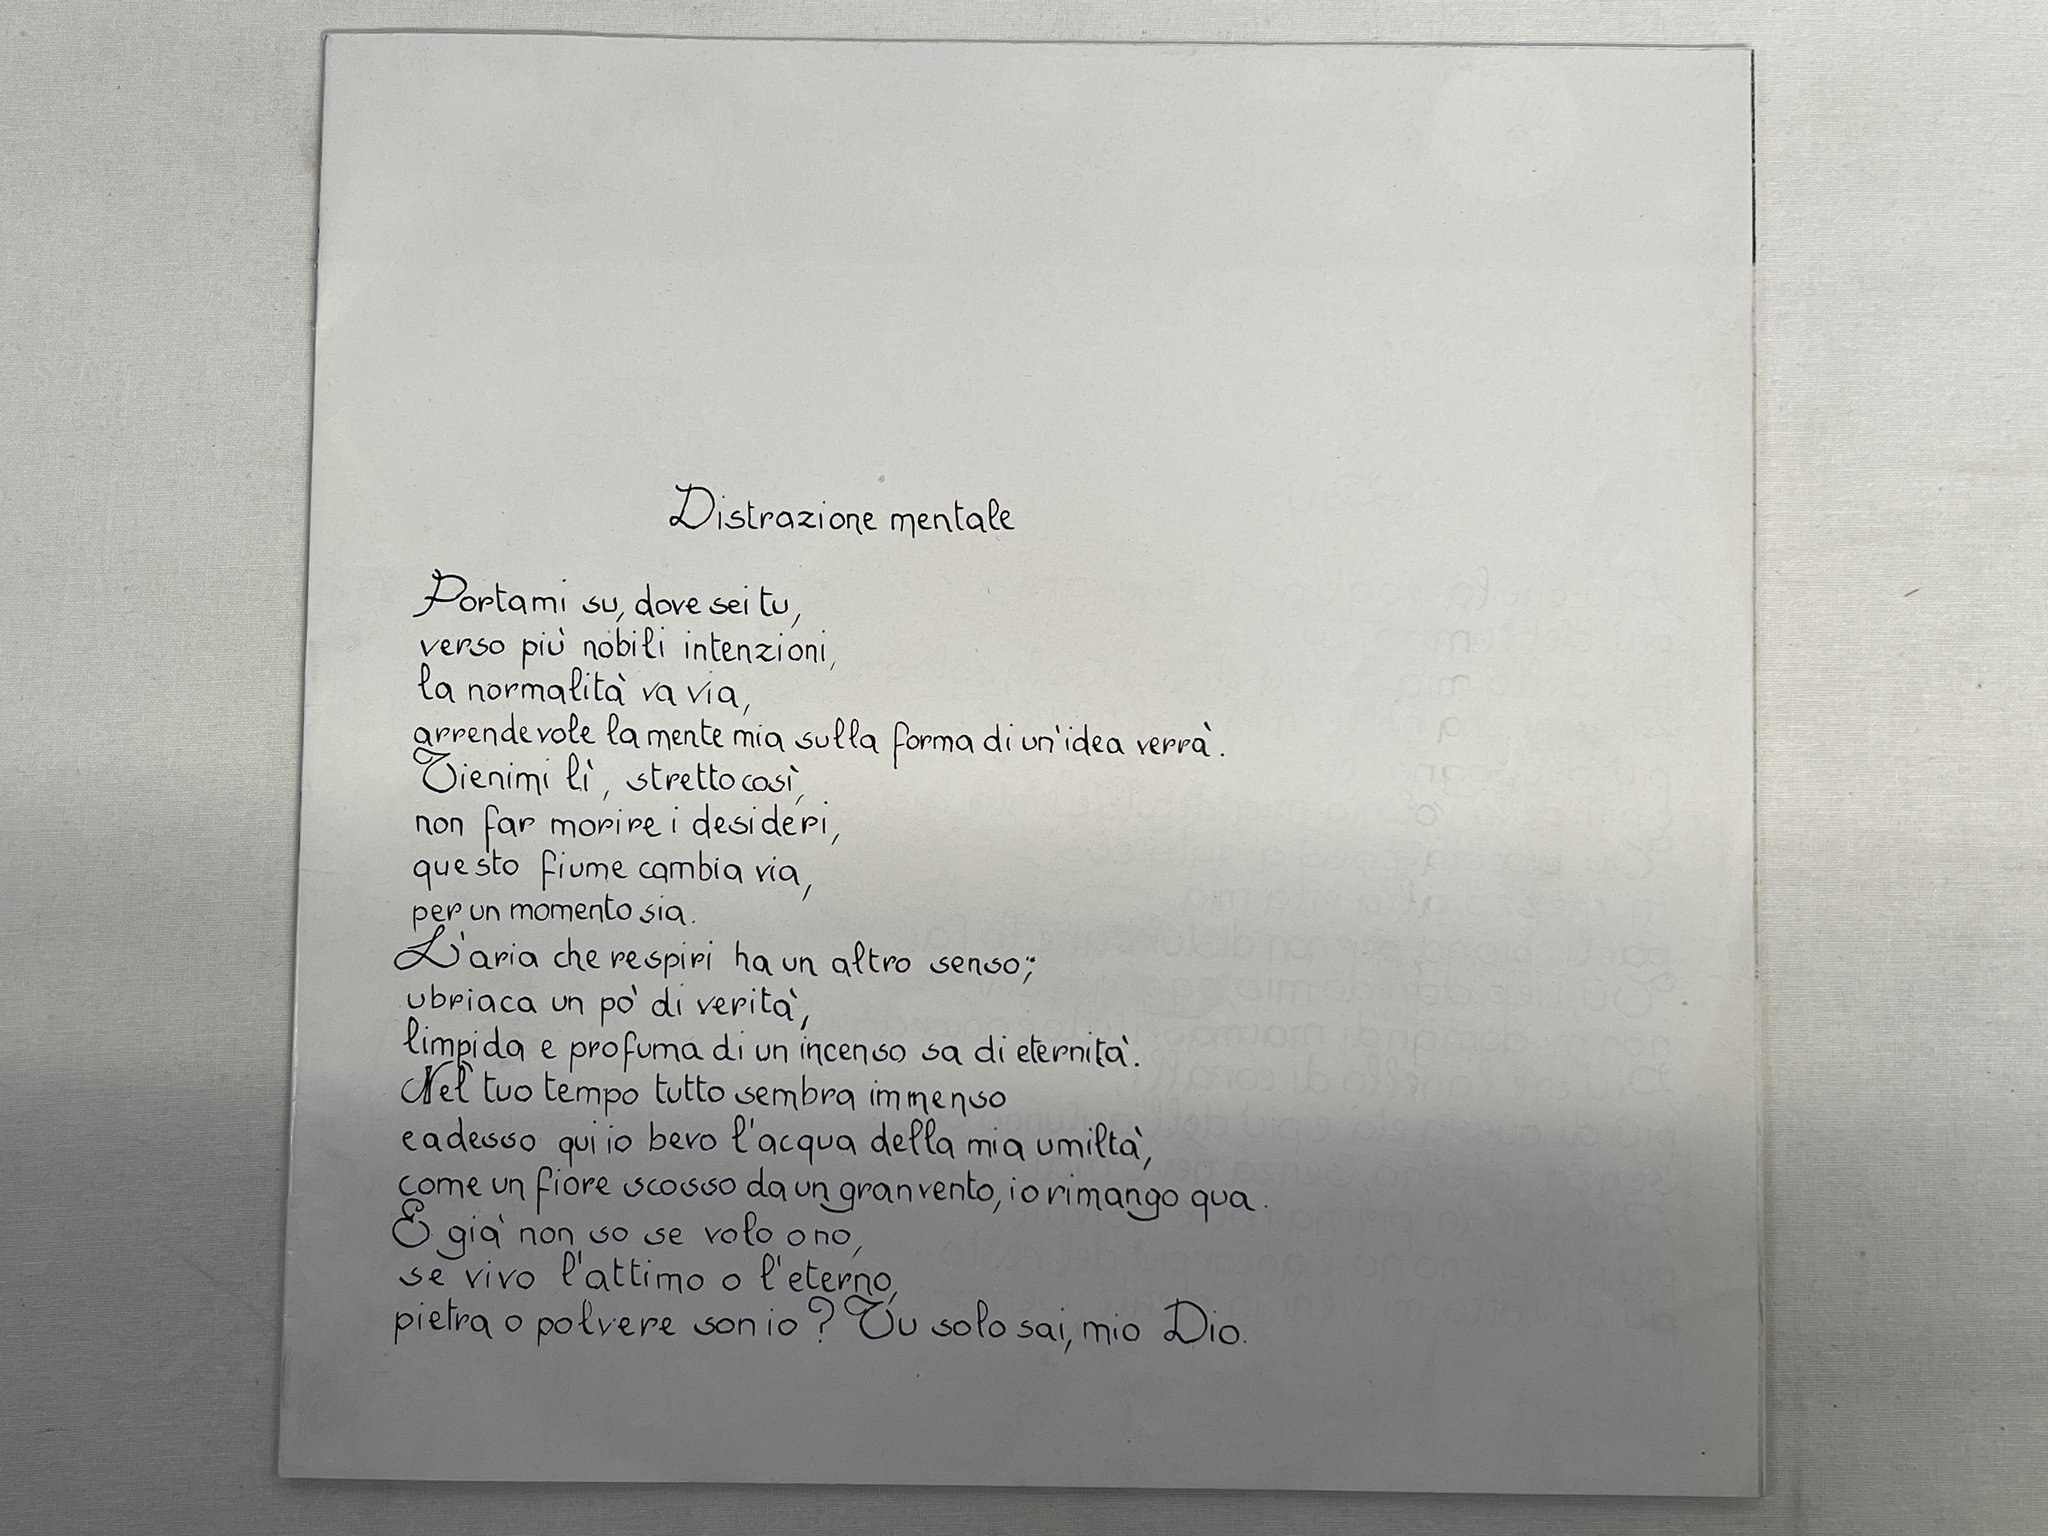 Distrazione mentale
Portami su, dove sei tu,
verso più nobili intenzioni,
la normalità va via,
arrendevole la mente mia sulla forma di un'idea verrà.
Tienimi lì, stretto così,
non far morire i desideri,
questo fiume cambia via,
per un momento sia.
L'aria che respiri ha un altro senso;
ubriaca un pò di verità,
limpida e profuma di un incenso sa di eternità.
Nel tuo tempo tutto sembra immenso
e adesso qui io bevo l'acqua della mia umiltà,
come un fiore scosso da un gran vento, io rimango qua.
E già non so se volo o no,
se vivo l'attimo o l'eterno,
pietra o polvere son io? Tu solo sai, mio Dio.